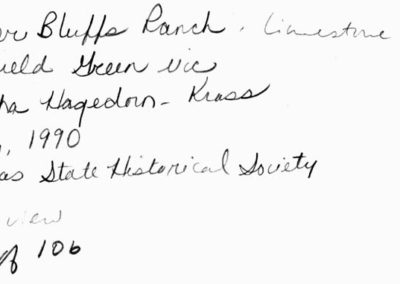 er Bluffs Ranch. Limestone
ield Green vic
ha Hagedorn-Krass
, 1990
as State Historical Society
view
of 106